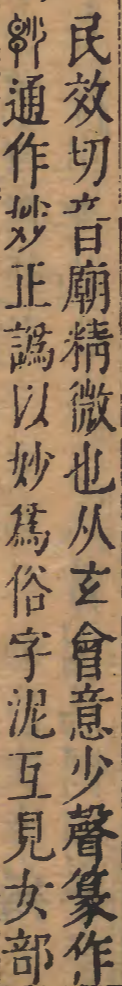 民效切音廟精微也从玄會意少聲篆作
𢆷通作妙正譌以妙爲俗字泥互見女部